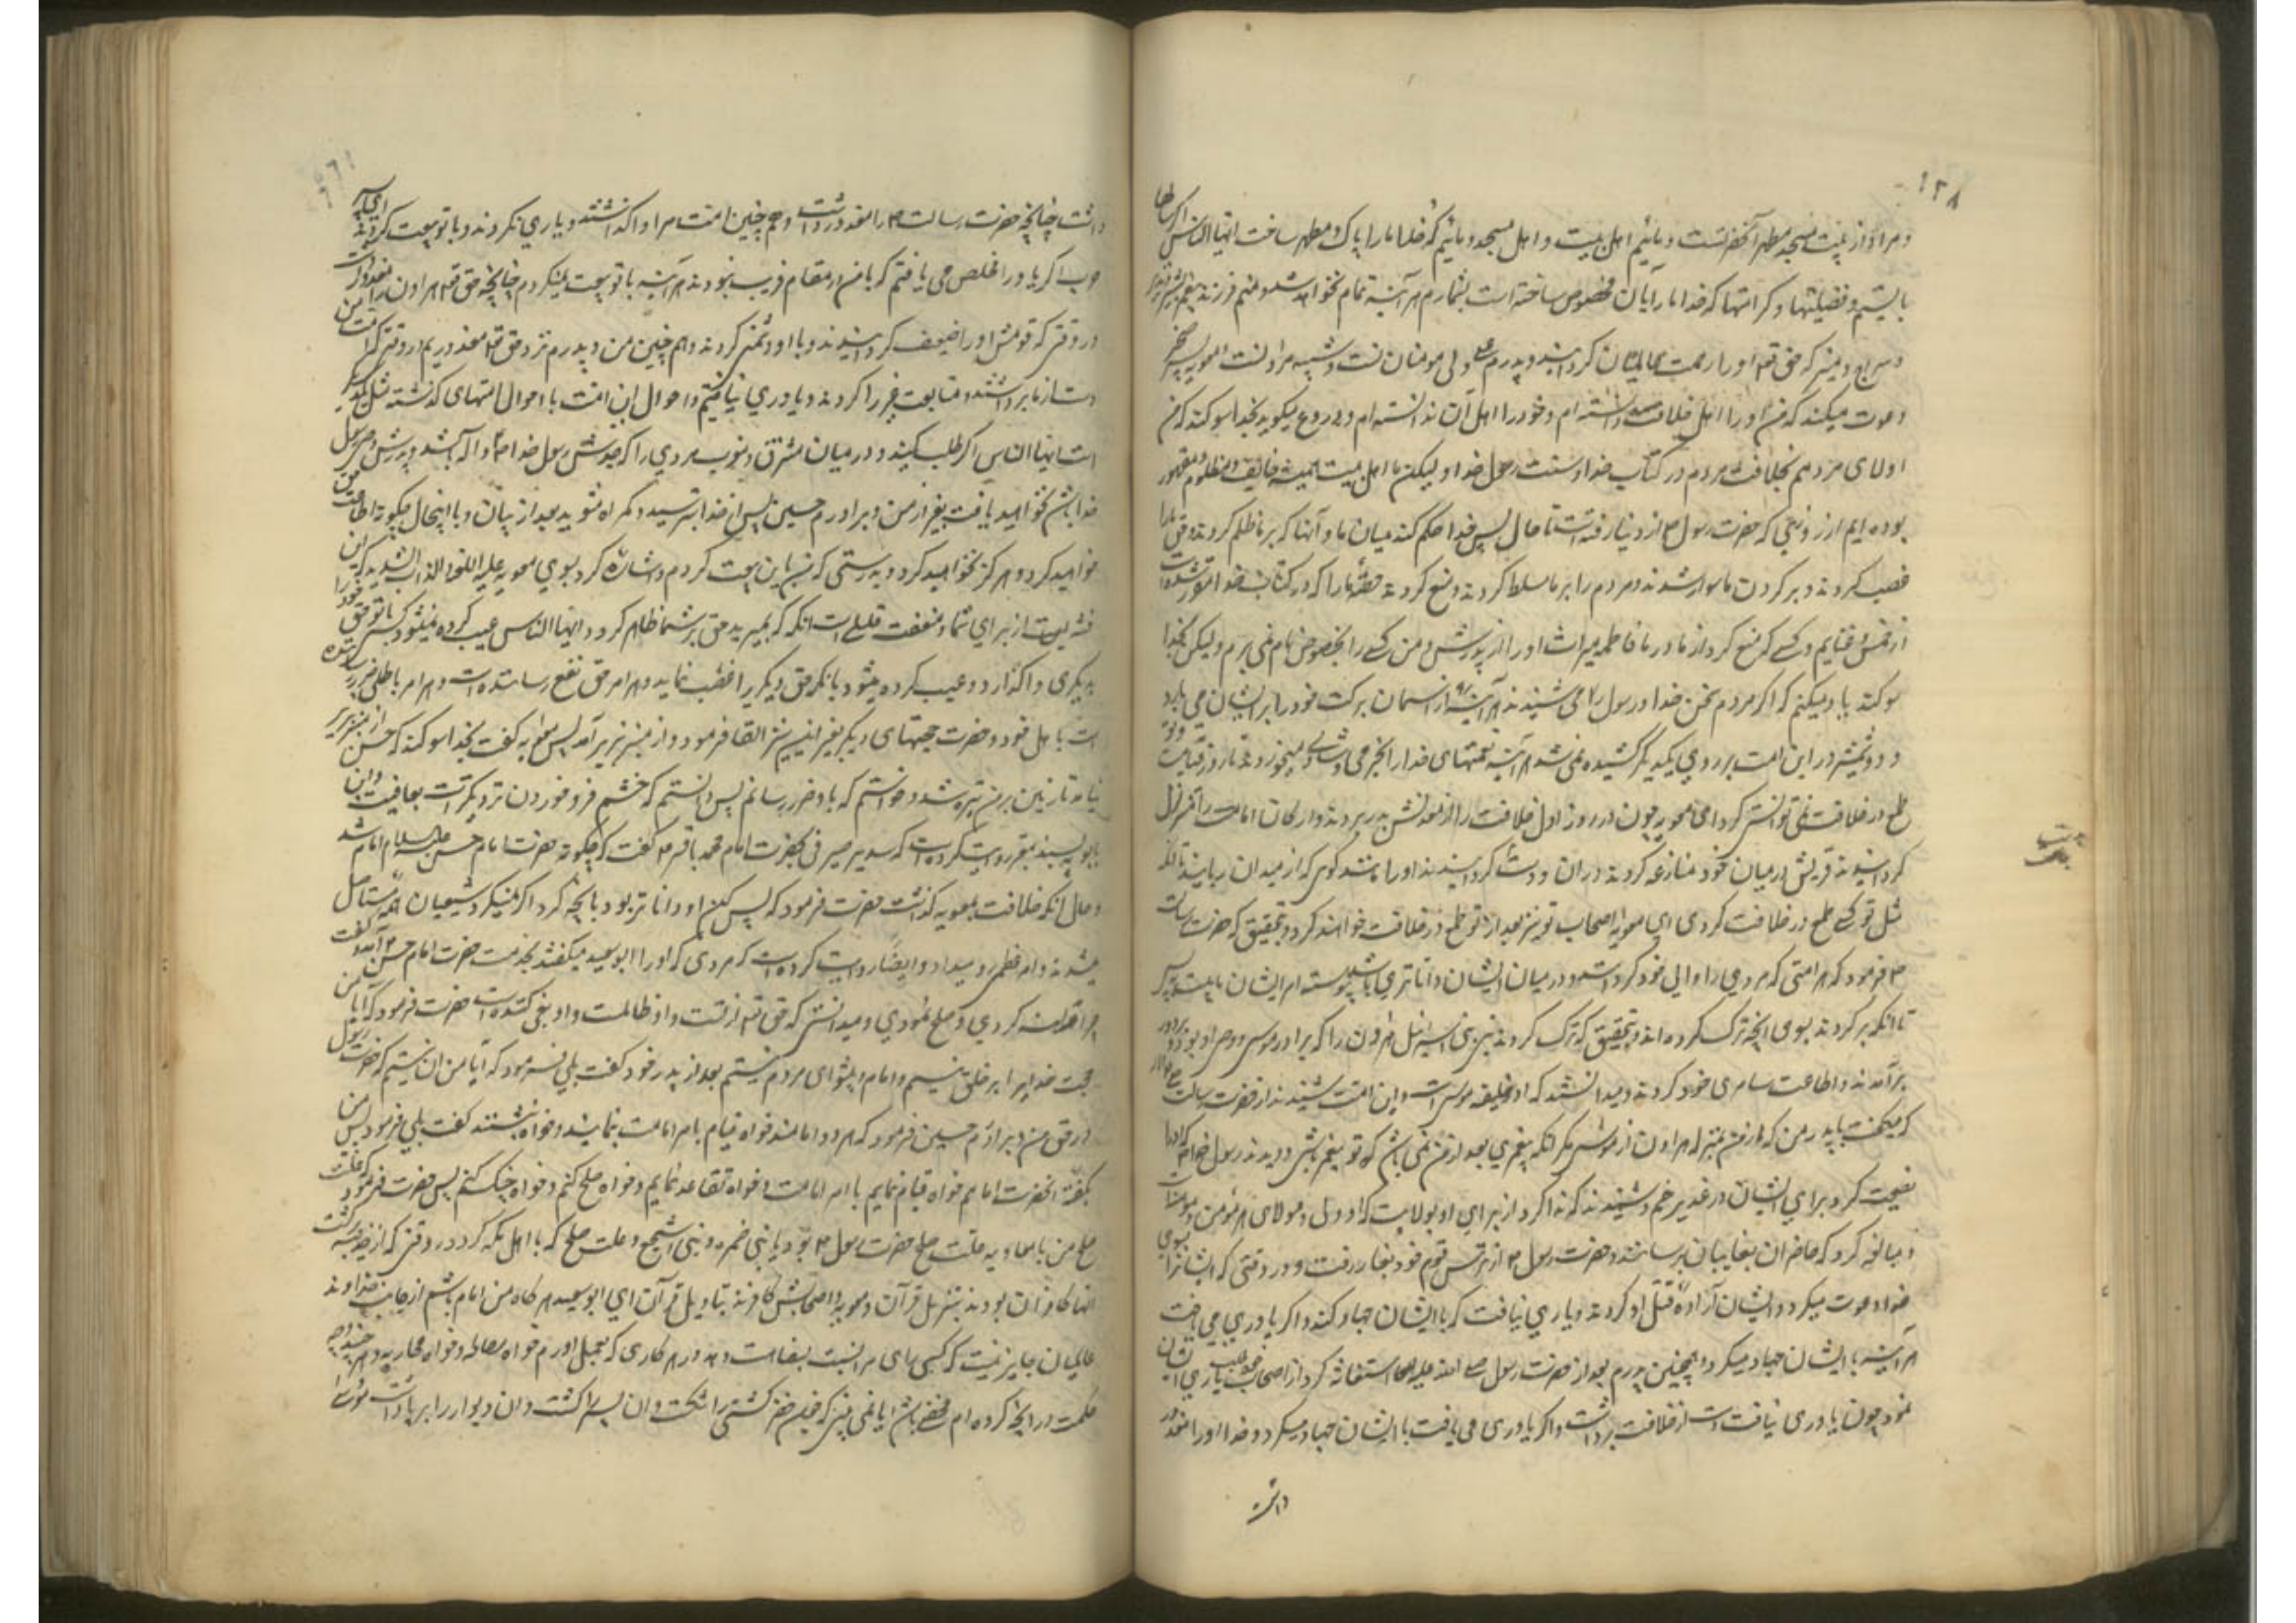 ۱۳۸
و مراد از بیت مسجد مطهر آنحضرتست و مائیم اهل بیت و اهل مسجد و مائیم که خدا ما را پاک و مطهر ساخت ایها الناس اگر سالها
بایستم و فضیلتها و کرامتها که خدا ما را بآن مخصوص ساخته است بشمارم هر آینه تمام نخواهد شد و منم فرزند بشیر نذیر
و سراج منیر که حق تع او را رحمت عالمیان گردانید و پدرم علی ولی مومنان است و شبیه هارونست معویه پسر صخر
دعوت میکند که من او را اهل خلافت دانسته ام و خود را اهل آن ندانسته ام و دروغ میگوید بخدا سوکند که من
اولای مردمم بخلافت مردم در کتاب خدا و سنت رسول خدا و لیکن ما اهل بیت همیشه خایف و مظلوم و مقهور
بوده ایم از روزی که حضرت رسول ص از دنیا رفته است تا حال پس خدا حکم کند میان ما و آنها که بر ما ظلم کردند و حق ما را
غصب کردند و بر کردن ما سوار شدند و مردم را بر ما مسلط کردند و منع کردند حصه ما را که در کتاب خدا مقرر شده است
از خمس و غنایم و کسی که منع کرد از مادر ما فاطمه میراث او را از پدرش و من کسی را بخصوص نام نمی برم و لیکن بخدا
سوکند یاد میکنم که اگر مردم سخن خدا و رسول را می شنیدند هر آینه آسمان برکت خود را بر ایشان می بارید
و دو شمشیر در این امت بر روی یکدیگر کشیده نمی شد و هر آینه نعمتهای خدا را بخرمی و شادی میخوردند تا روز قیامت و تو
طمع در خلافت نمی توانستی کرد ای معویه چون در روز اول خلافت را از معدنش بدر بردند و ارکان امامت را متزلزل
کردانیدند قریش در میان خود منازعه کردند در آن و دست کردانیدند او را مانند گوی که از میدان ربایند تا آنکه
مثل تو کسی طمع در خلافت کردی ای معویه و اصحاب تو نیز بعد از تو طمع در خلافت خواهند کرد و بتحقیق که حضرت رسالت
ص فرمود که هر امتی که مردی را والی خود کرداند و در میان ایشان داناتری باشد پیوسته امر ایشان بایستد به پستی
تا آنکه بر کردند بسوی آنچه ترک کرده اند و بتحقیق که ترک کردند بنی اسرائیل هارون را که برادر موسی و وصی او بود و
بر آمدند و اطاعت سامری خود کردند و میدانستند که او خلیفه موسی است و این امت شنیدند از حضرت رسالت ص
که میگفت با پدر من که تو از من بمنزله هارون از موسی مگر آنکه پیغمبری بعد از من نمی باشد و دیدند رسول خدا که او را
نصیحت کرد برای ایشان در غدیر خم و شنیدند که ندا کرد از برای او بولایت که او ولی و مولای هر مؤمن و مومنه است
و مبالغه کرد که حاضران بغایبان برسانند و حضرت رسول ص از ترس قوم خود بغار رفت در وقتی که ایشانرا بسوی
خدا دعوت میکرد و ایشان اراده قتل او کردند و یاری نیافت که با ایشان جهاد کند و اگر یاوری می یافت
هر آینه با ایشان جهاد میکرد و همچنین پدرم بعد از حضرت رسول صلی الله علیه استغاثه کرد از اصحاب خود طلب یاری ایشان
نمود چون یاوری نیافت دست از خلافت برداشت و اگر یاوری می یافت با ایشان جهاد میکرد و خدا او را معذور
داشت
داشت چنانچه حضرت رسالت ص را معذور داشت و هم چنین امت مرا واگذاشتند و یاری نکردند و با تو بیعت کردند ای پسر
حرب اگر یاوران مخلص می یافتم که با من در مقام فریب نبودند هر آینه با تو بیعت نمیکردم چنانچه حق تع هارون را معذور داشت
در وقتی که قومش او را ضعیف کردانیدند و با او دشمنی کردند و هم چنین من و پدرم نزد حق تع معذوریم در وقتی که امت
دست از ما برداشتند و متابعت غیر ما کردند و یاوری نیافتیم و احوال این امت با احوال امتهای گذشته مثل یکدیگر
است ایها الناس اگر طلب کنید در میان مشرق و مغرب مردی را که جدش رسول خدا ص باشد و پدرش وصی رسول
خدا باشد نخواهید یافت بغیر از من و برادرم حسین پس از خدا بترسید و گمراه مشوید بعد از بیان و با اینحال چگونه اطاعت من
خواهید کرد و هرگز نخواهید کرد و بدرستی که من باین بیعت کردم و اشاره کرد بسوی معویه علیه اللعنه و العذاب الشدید که این
فتنه ایست از برای شما و منفعت قلیلی است ایها الناس عیب کرده نمیشود کسی که حق خود را
بدیگری واگذارد و عیب کرده میشود بآنکه حق دیگری را غصب نماید و هر امر حق نفع رساننده است و هر امر باطل ضرر رساننده
است باهل خود و حضرت حجتهای دیگر بغیر از این نیز القا فرمود و از منبر بزیر آمد پس معویه گفت بخدا سوکند که حسن از منبر بزیر
نیامد تا زمین بر من تیره شد و خواستم که باو ضرر رسانم پس دانستم که خشم فرو خوردن نزدیکتر است بعافیت و ابن
بابویه بسند معتبر روایت کرده است که سدیر صیرفی بحضرت امام محمد باقر ع گفت که چگونه حضرت امام حسن علیه السلام امام باشد
و حال آنکه خلافت بمعویه گذاشت حضرت فرمود که پس کن او داناتر بود بآنچه کرد اگر نمیکرد شیعیان همه مستاصل
میشدند و امر عظیم رو میداد و ایضا روایت کرده است که مردی که او را ابو سعید میگفتند بخدمت حضرت امام حسن ع آمد و گفت
چرا مداهنه کردی و صلح نمودی و میدانستی که حق تع از تست و او ظالم است و او بغی کننده است حضرت فرمود که آیا من
حجت خدا بر خلق نیستم و امام و پیشوای مردم نیستم بعد از پدر خود گفت بلی فرمود که آیا من آن نیستم که حضرت رسول
در حق من و برادرم حسین فرمود که هر دو امامند خواه قیام بامر امامت نمایند و خواه بنشینند گفت بلی فرمود پس من
بگفته آنحضرت امامم خواه قیام نمایم بامر امامت و خواه تقاعد نمایم و خواه صلح کنم و خواه جنگ کنم پس حضرت فرمود که علت
صلح من با معاویه علت صلح حضرت رسول ص بود با بنی ضمره و بنی اشجع و علت صلح که با اهل مکه کرد در وقتی که از حدیبیه برگشت
آنها کافران بودند بتنزیل قرآن و معویه و اصحابش کافرند بتاویل قرآن ای ابو سعید هر گاه من امام باشم از جانب خداوند
عالمیان جایز نیست که کسی رای مرا نسبت بسفاهت دهد در هر کاری که بعمل آورم خواه مصالحه و خواه محاربه و هر چند وجه
حکمت در آنچه کرده ام مخفی باشد آیا نمی بینی که چون خضر کشتی را شکست و آن پسر را کشت و آن دیوار را بر پا داشت موسی